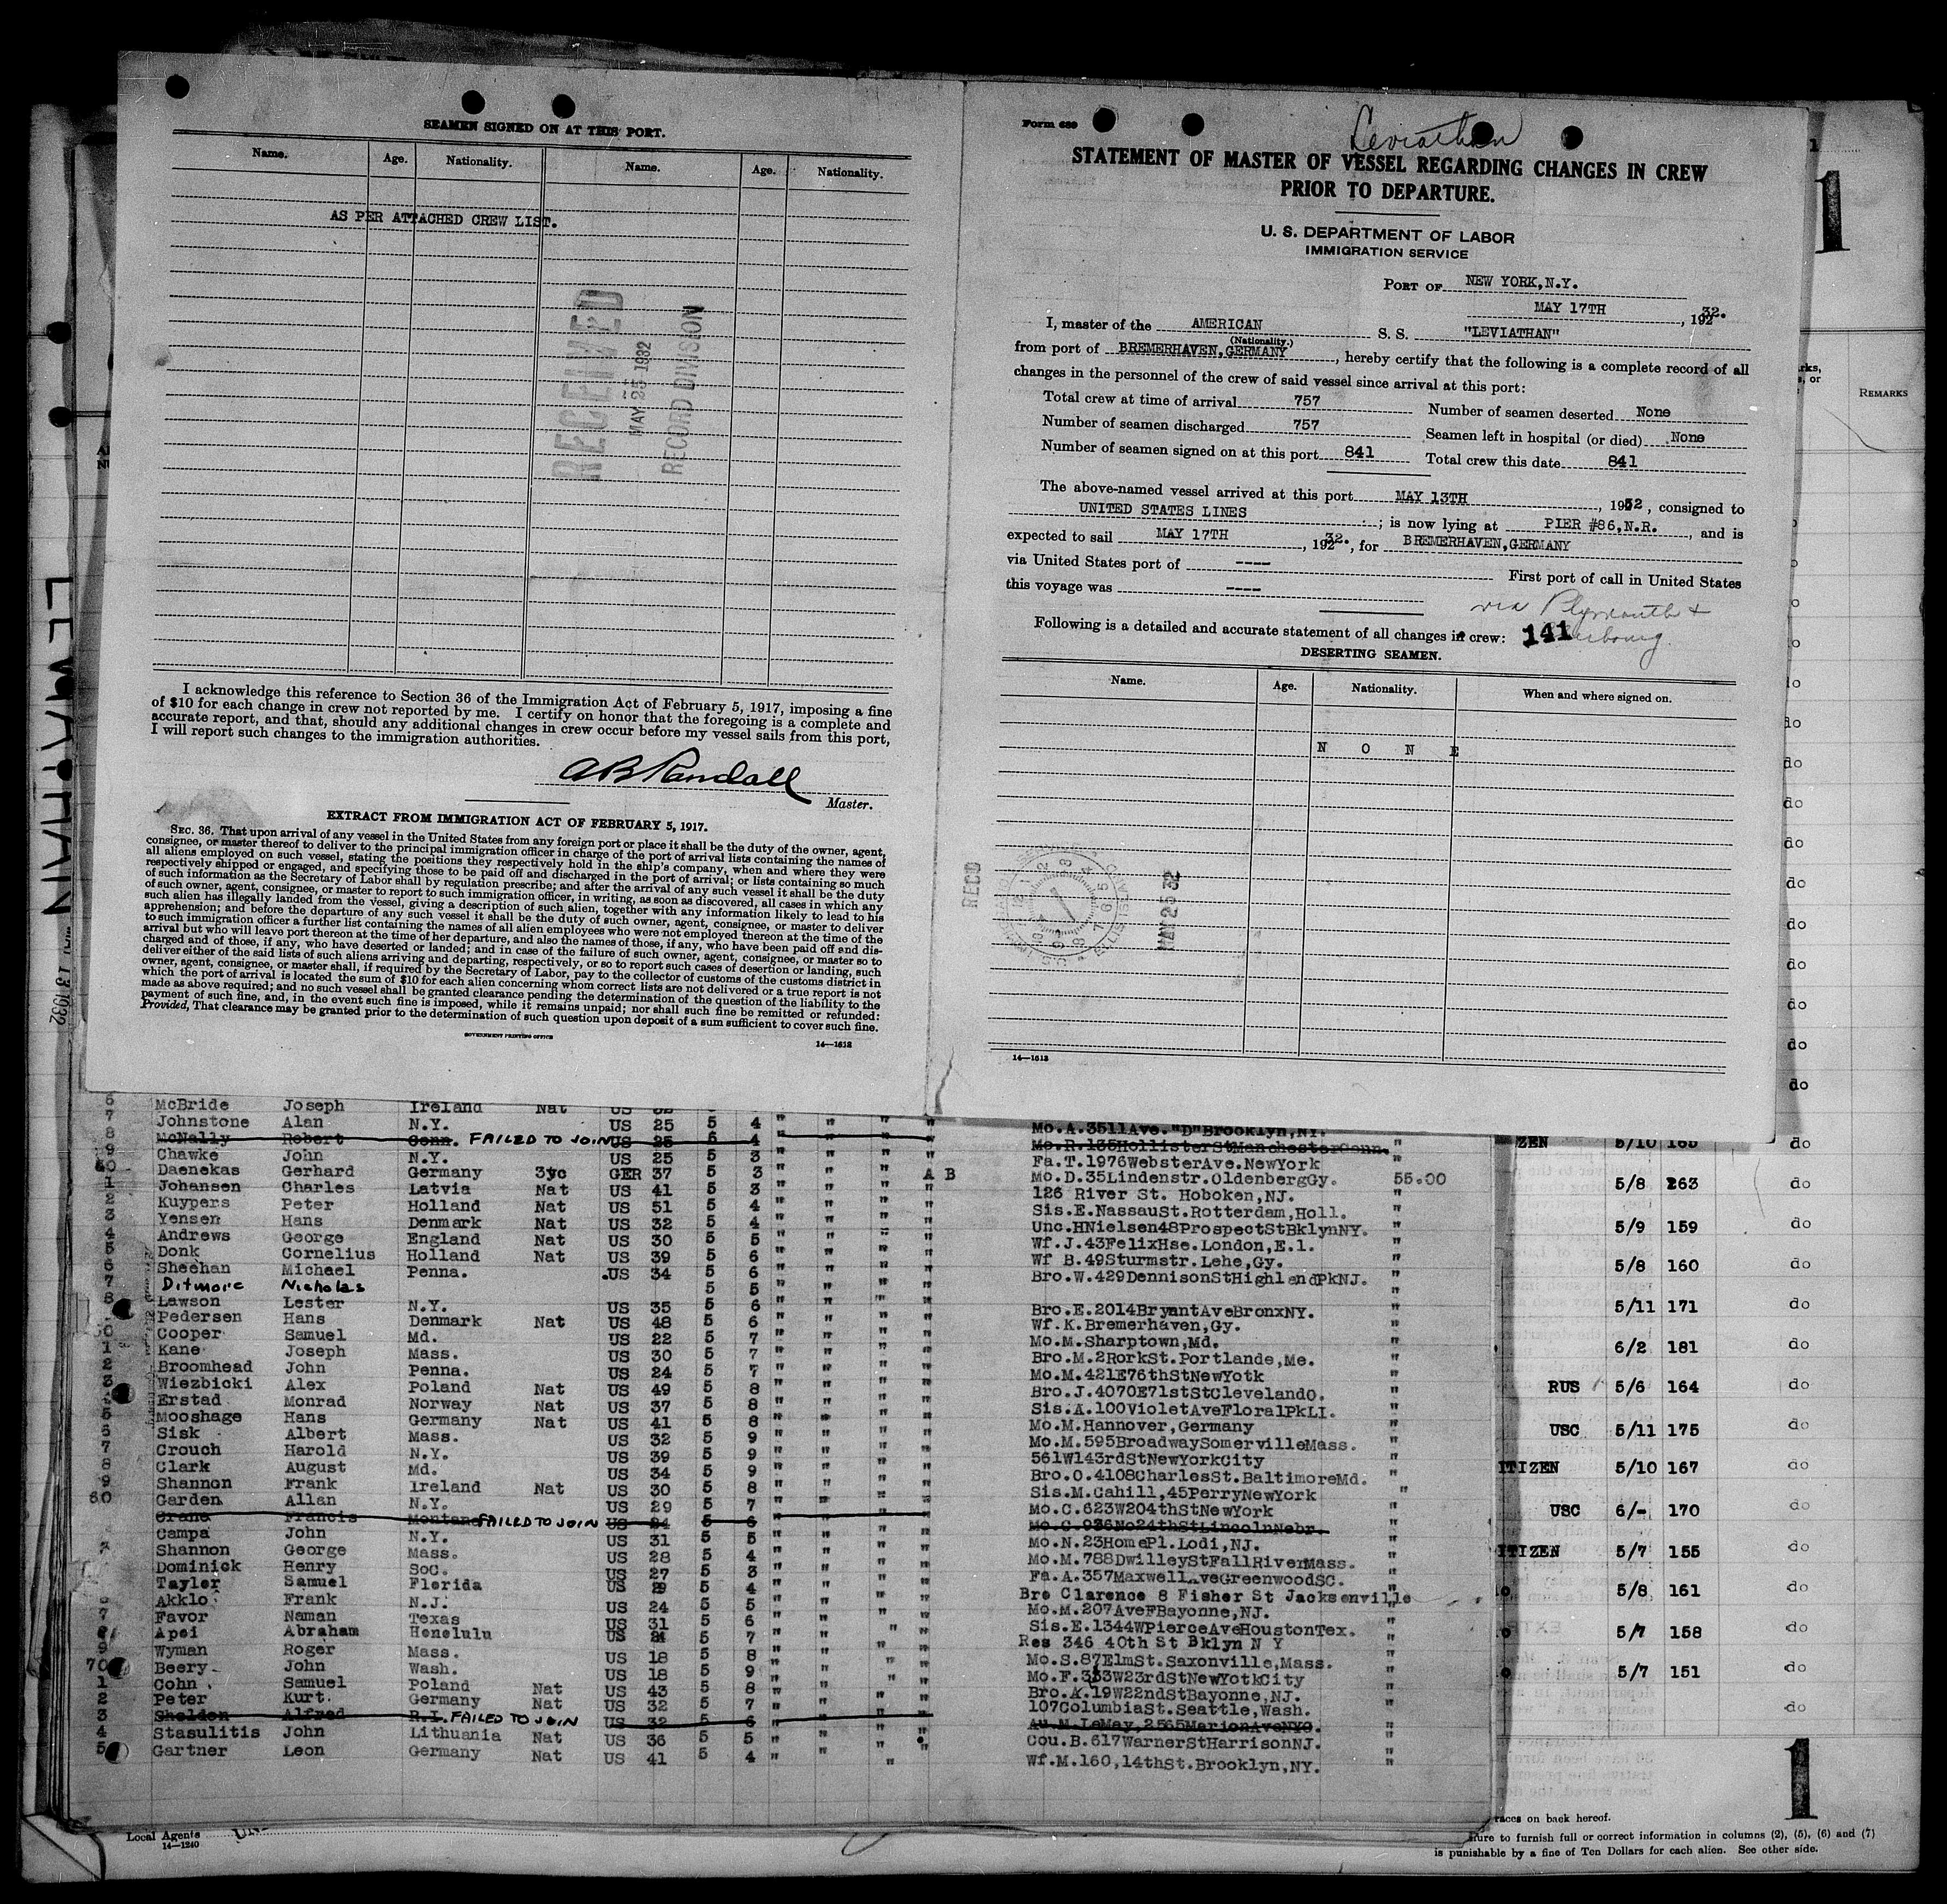 SEAMEN SIGNED ON AT THIS PORT.
Name. Age. Nationality. Name. Age. Nationality.
AS PER ATTACHED CREW LIST.
RECEIVED
MAY 25 1932
RECORD DIVISION
I acknowledge this reference to Section 36 of the Immigration Act of February 5, 1917, imposing a fine
of $10 for each change in crew not reported by me. I certify on honor that the foregoing is a complete and
accurate report, and that, should any additional changes in crew occur before my vessel sails from this port,
I will report such changes to the immigration authorities.
A B Randall
Master.
EXTRACT FROM IMMIGRATION ACT OF FEBRUARY 5, 1917.
SEC. 36. That upon arrival of any vessel in the United States from any foreign port or place it shall be the duty of the owner, agent,
consignee, or master thereof to deliver to the principal immigration officer in charge of the port of arrival lists containing the names of
all aliens employed on such vessel, stating the positions they respectively hold in the ship's company, when and where they were
respectively shipped or engaged, and specifying those to be paid off and discharged in the port of arrival; or lists containing so much
of such information as the Secretary of Labor shall by regulation prescribe; and after the arrival of any such vessel it shall be the duty
of such owner, agent, consignee, or master to report to such immigration officer, in writing, as soon as discovered, all cases in which any
such alien has illegally landed from the vessel, giving a description of such alien, together with any information likely to lead to his
apprehension; and before the departure of any such vessel it shall be the duty of such owner, agent, consignee, or master to deliver
to such immigration officer a further list containing the names of all alien employees who were not employed thereon at the time of the
arrival but who will leave port thereon at the time of her departure, and also the names of those, if any, who have been paid off and dis-
charged and of those, if any, who have deserted or landed; and in case of the failure of such owner, agent, consignee, or master so to
deliver either of the said lists of such aliens arriving and departing, respectively, or so to report such cases of desertion or landing, such
owner, agent, consignee, or master shall, if required by the Secretary of Labor, pay to the collector of customs of the customs district in
which the port of arrival is located the sum of $10 for each alien concerning whom correct lists are not delivered or a true report is not
made as above required; and no such vessel shall be granted clearance pending the determination of the question of the liability to the
payment of such fine, and, in the event such fine is imposed, while it remains unpaid; nor shall such fine be remitted or refunded:
Provided, That clearance may be granted prior to the determination of such question upon deposit of a sum sufficient to cover such fine.
GOVERNMENT PRINTING OFFICE
14—1618
Form 689
Leviathan
STATEMENT OF MASTER OF VESSEL REGARDING CHANGES IN CREW
PRIOR TO DEPARTURE.
U. S. DEPARTMENT OF LABOR
IMMIGRATION SERVICE
PORT OF NEW YORK,N.Y.
MAY 17TH , 192 32.
I, master of the AMERICAN S. S. "LEVIATHAN"
(Nationality.)
from port of BREMERHAVEN,GERMANY , hereby certify that the following is a complete record of all
changes in the personnel of the crew of said vessel since arrival at this port:
Total crew at time of arrival 757 Number of seamen deserted None
Number of seamen discharged 757 Seamen left in hospital (or died) None
Number of seamen signed on at this port 841 Total crew this date 841
The above-named vessel arrived at this port MAY 13TH , 1932, consigned to
UNITED STATES LINES ; is now lying at PIER #86,N.R. , and is
expected to sail MAY 17TH , 192 32. , for BREMERHAVEN,GERMANY
via United States port of ---- First port of call in United States
this voyage was ----
via Plymouth +
Cherbourg
Following is a detailed and accurate statement of all changes in crew: 141
DESERTING SEAMEN.
Name. Age. Nationality. When and where signed on.
N O N E
RECD
MAY 25 32
14—1618
REMARKS
1
LEVIATHAN
6 McBride Joseph Ireland Nat US 32
7 Johnstone Alan N.Y. US 25 5 4 " " " " Mo.A.3511Ave."D"Brooklyn,NY.
8 McNally Robert Conn. FAILED TO JOIN US 25 5 4 Mo.R.135HollisterStManchesterConn. "
9 Chawke John N.Y. US 25 5 3 " " " " Fa.T.1976WebsterAve.NewYork
Daenekas Gerhard Germany 3yc GER 37 5 3 " " " A B Mo.D.35Lindenstr.OldenbergGy. 55.00
1 Johansen Charles Latvia Nat US 41 5 3 " " " " 126 River St. Hoboken,NJ. "
2 Kuypers Peter Holland Nat US 51 5 4 " " " " Sis.E.NassauSt.Rotterdam,Holl. "
3 Yensen Hans Denmark Nat US 32 5 4 " " " " Unc.HNielsen48ProspectStBklynNY. "
4 Andrews George England Nat US 30 5 5 " " " " Wf.J.43FelixHse.London,E.1. "
5 Donk Cornelius Holland Nat US 39 5 6 " " " " Wf B.49Sturmstr.Lehe,Gy. "
6 Sheehan Michael Penna. US 34 5 6 " " " " Bro.W.429DennisonStHighlandPkNJ. "
7 Ditmore Nicholas 5 5 " " " "
8 Lawson Lester N.Y. US 35 5 6 " " " " Bro.E.2014BryantAveBronxNY. "
Pedersen Hans Denmark Nat US 48 5 6 " " " " Wf.K.Bremerhaven,Gy. "
Cooper Samuel Md. US 22 5 7 " " " " Mo.M.Sharptown,Md. "
1 Kane Joseph Mass. US 30 5 7 " " " " Bro.M.2RorkSt.Portlande,Me. "
2 Broomhead John Penna. US 24 5 7 " " " " Mo.M.421E76thStNewYotk "
3 Wiezbicki Alex Poland Nat US 49 5 8 " " " " Bro.J.4070E71stStClevelandO. "
Erstad Monrad Norway Nat US 37 5 8 " " " " Sis.A.100VioletAveFloralPkLI. "
5 Mooshage Hans Germany Nat US 41 5 8 " " " " Mo.M.Hannover,Germany "
6 Sisk Albert Mass. US 32 5 9 " " " " Mo.M.595BroadwaySomervilleMass. "
7 Crouch Harold N.Y. US 39 5 9 " " " " 561W143rdStNewYorkCity "
8 Clark August Md. US 34 5 9 " " " " Bro.O.4108CharlesSt.BaltimoreMd. "
9 Shannon Frank Ireland Nat US 30 5 8 " " " " Sis.M.Cahill,45PerryNewYork "
60 Garden Allan N.Y. US 29 5 7 " " " " Mo.C.623W204thStNewYork "
Crane Francis Montana FAILED TO JOIN US 24 5 6 Mo.C.936No24thStLincolnNebr. "
Campa John N.Y. US 31 5 5 " " " " Mo.N.23HomePl.Lodi,NJ. "
Shannon George Mass. US 28 5 4 " " " " Mo.M.788DwilleyStFallRiverMass. "
Dominick Henry SoC. US 27 5 3 " " " " Fa.A.357MaxwellAveGreenwoodSC. "
Tayler Samuel Florida US 29 5 4 " " " " Bro Clarence 8 Fisher St Jacksenville
Akklo Frank N.J. US 24 5 5 " " " " Mo.M.207AveFBayonne,NJ. "
7 Favor Naman Texas US 31 5 6 " " " Sis.E.1344WPierceAveHoustonTex. "
Apei Abraham Honelulu US 5 7 " " " Res 346 40th St Bklyn N Y
9 Wyman Roger Mass. US 18 5 8 " " " Mo.S.87ElmSt.Saxonville,Mass. "
70 Beery John Wash. US 18 5 9 " " " Mo.F.333W23rdStNewYotkCity "
1 Cohn Samuel Poland Nat US 43 5 8 " " " Bro.K.19W22ndStBayonne,NJ. "
2 Peter Kurt Germany Nat US 32 5 7 " " " 107ColumbiaSt.Seattle,Wash. "
3 Sheldon Alfred R.I. FAILED TO JOIN US 32 5 6 Au.M.LeMay,2565MarionAveNYC. "
4 Stasulitis John Lithuania Nat US 36 5 5 " " " Cou.B.617WarnerStHarrisonNJ. "
5 Gartner Leon Germany Nat US 41 5 4 " " Wf.M.160,14thSt.Brooklyn,NY. "
ZEN 5/10 165 do
5/8 263 do
5/9 159 do
5/8 160 do
5/11 171 do
6/2 181 do
RUS 5/6 164 do
USC 5/11 175 do
ITIZEN 5/10 167 do
USC 6/- 170 do
ITIZEN 5/7 155 do
5/8 161 do
5/7 158 do
5/7 151 do
do
1
Local Agents
14—1240
races on back hereof.
lure to furnish full or correct information in columns (2), (5), (6) and (7)
is punishable by a fine of Ten Dollars for each alien. See other side.